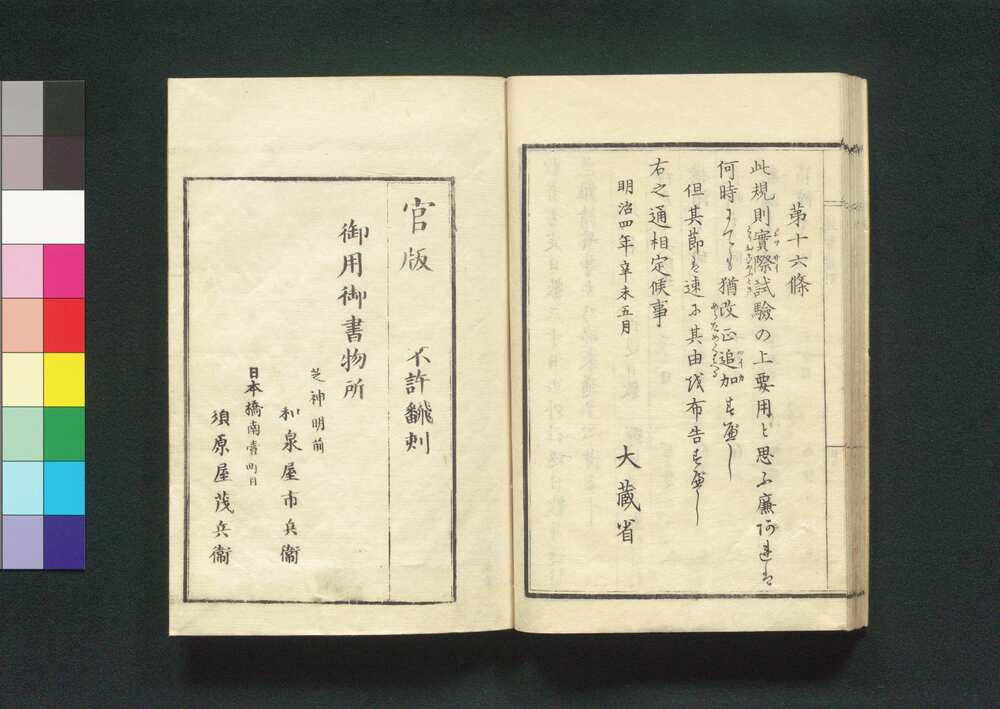 第十六條
此規則實際試驗の上要用と思ふ廉阿連は
何時にても猶改正追加すべし
但其節は速に其由を布告すべし
右之通相定候事
明治四年辛未五月
大藏省
官版
不許飜刻
御用御書物所
芝神明前
和泉屋市兵衞
日本橋南壹町目
須原屋茂兵衞